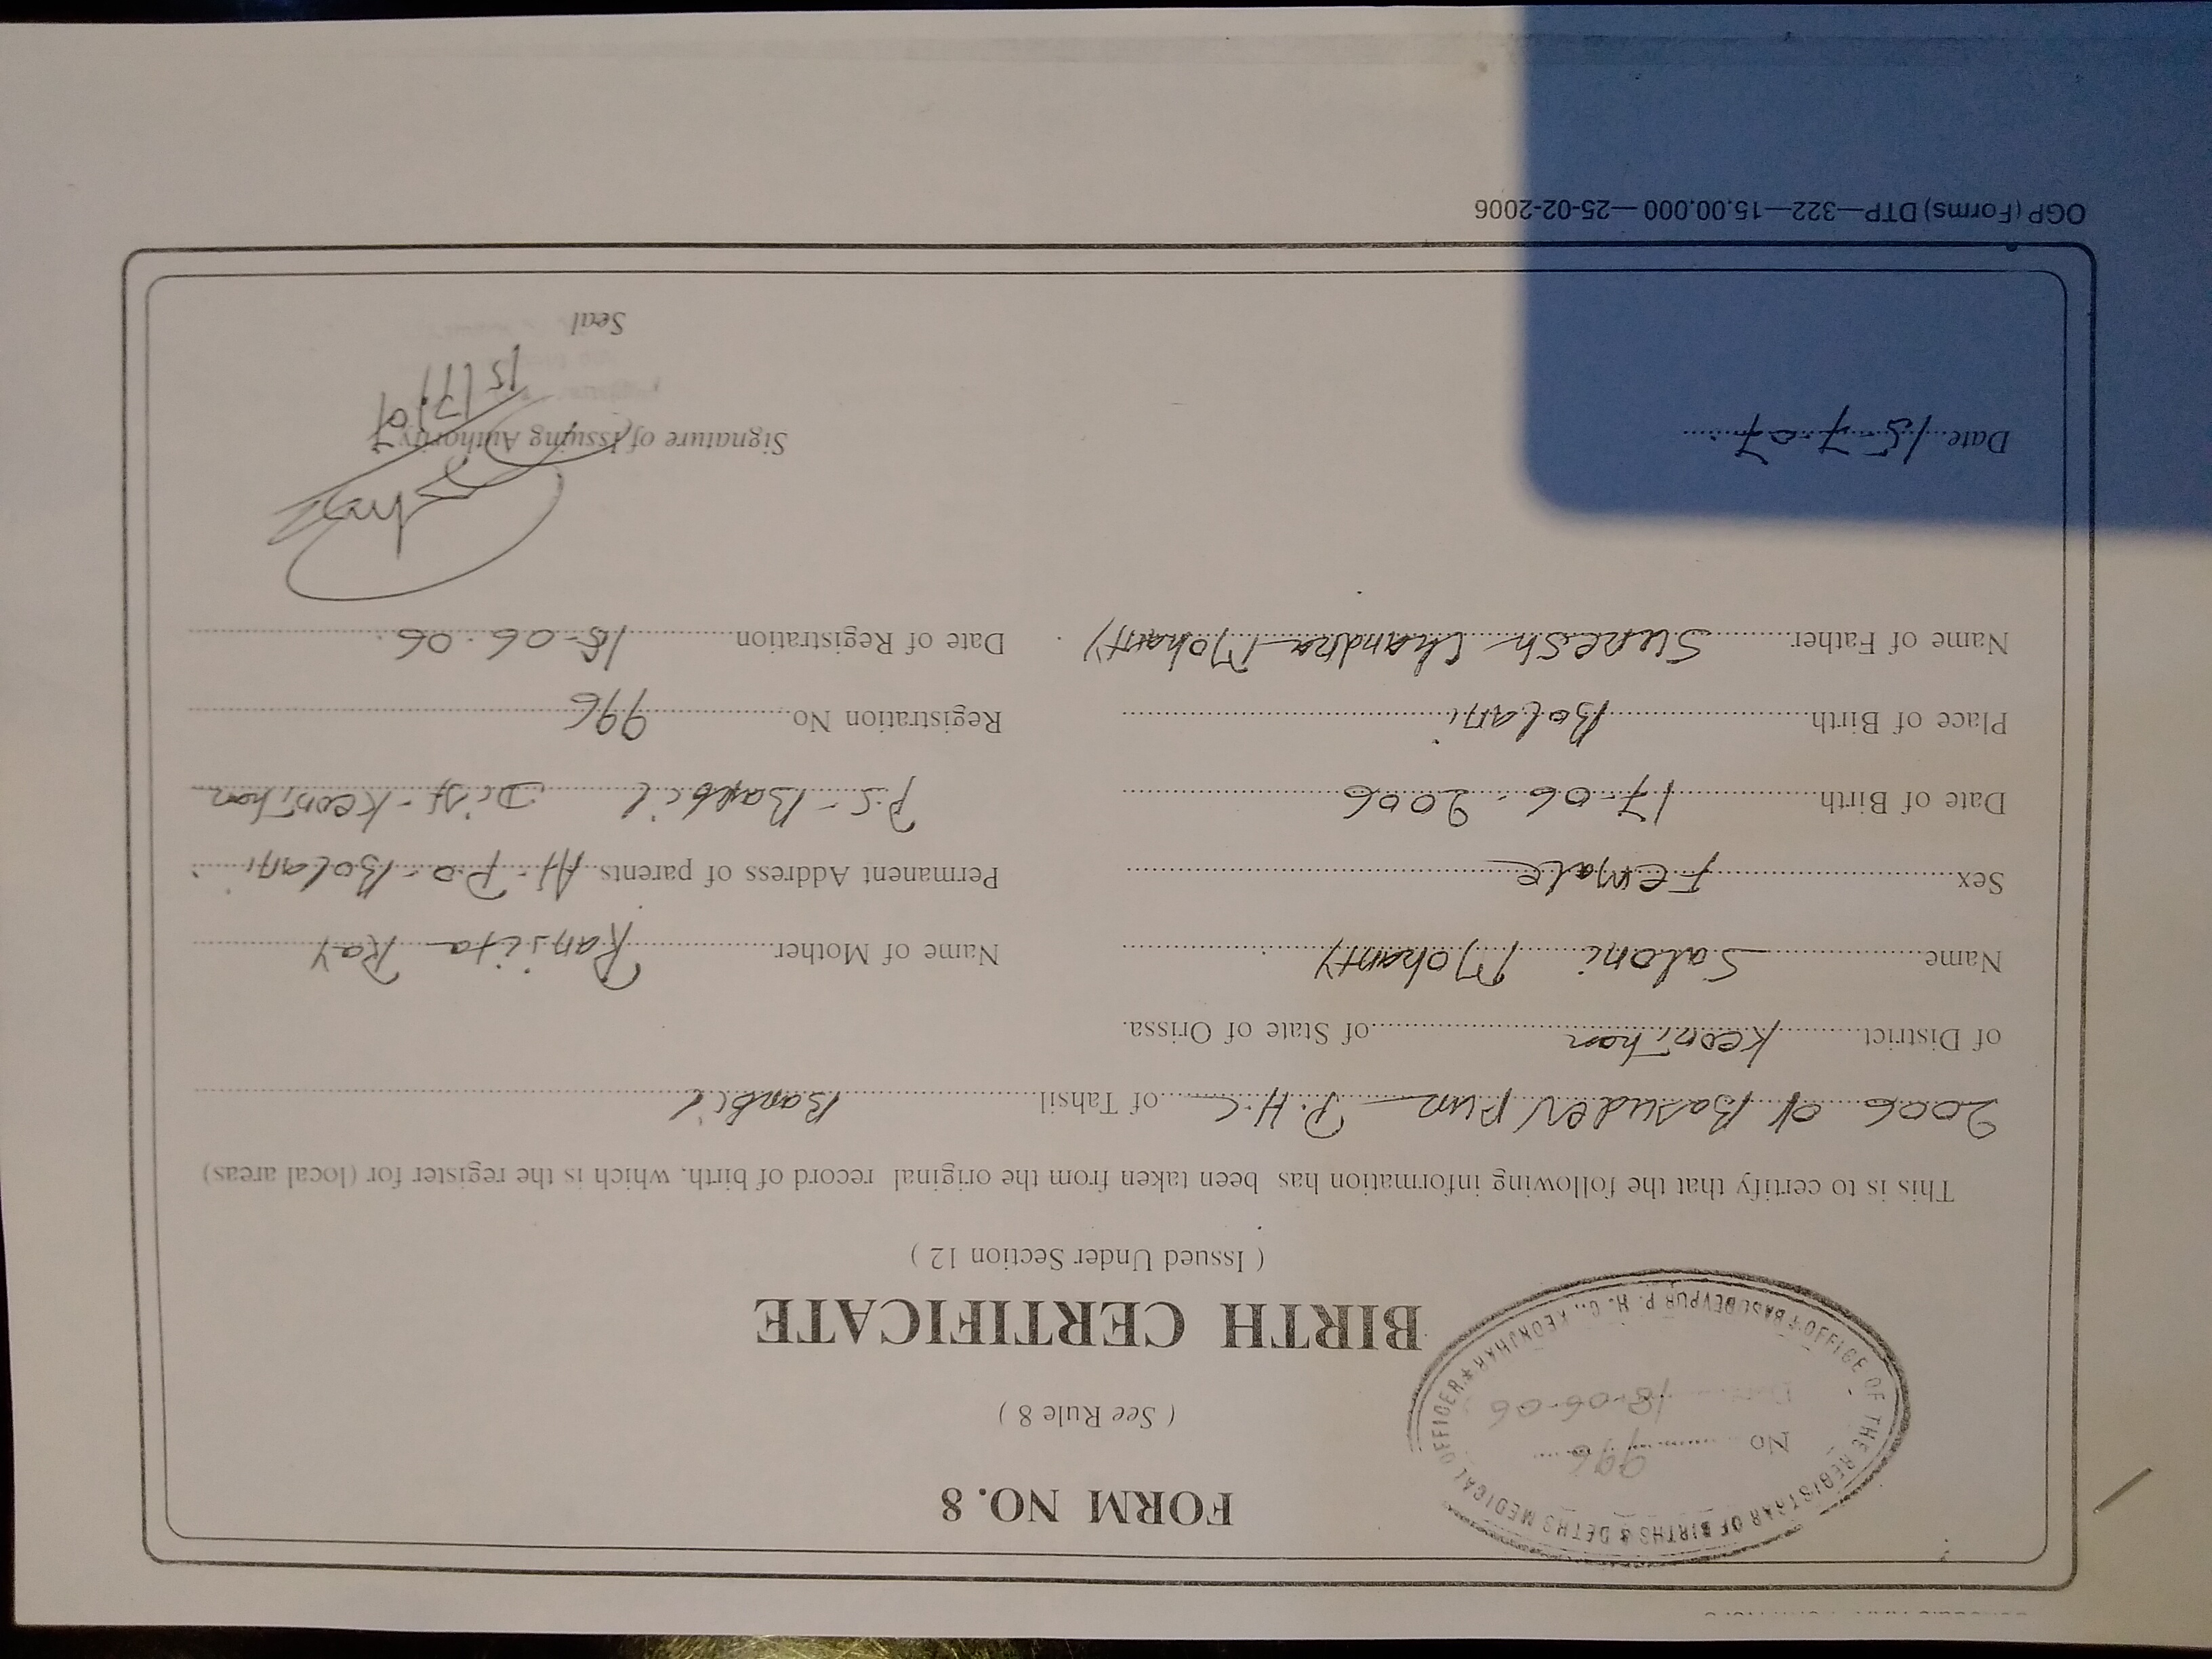 FORM NO. 8
( See Rule 8 )
OFFICE OF THE REGISTRAR OF BIRTHS & DETHS MEDICAL OFFICER ★ BASUDEVPUR P. H. C., KEONJHAR
No 996
Date 18-06-06
BIRTH CERTIFICATE
( Issued Under Section 12 )
This is to certify that the following information has been taken from the original record of birth. which is the register for (local areas)
2006 of Basudevpur P.H.C of Tahsil Barbil
of District Keonjhar of State of Orissa.
Name Saloni Mohanty Name of Mother Ranjita Ray
Sex Female Permanent Address of parents At-P.O-Bolani
Date of Birth 17-06-2006 P.S-Barbil Dist-Keonjhar
Place of Birth Bolani Registration No. 996
Name of Father Suresh Chandra Mohanty Date of Registration 18-06-06.
Date 15-7-07 Signature of Issuing Authority
15/7/07
Seal
OGP (Forms) DTP—322—15,00,000—25-02-2006